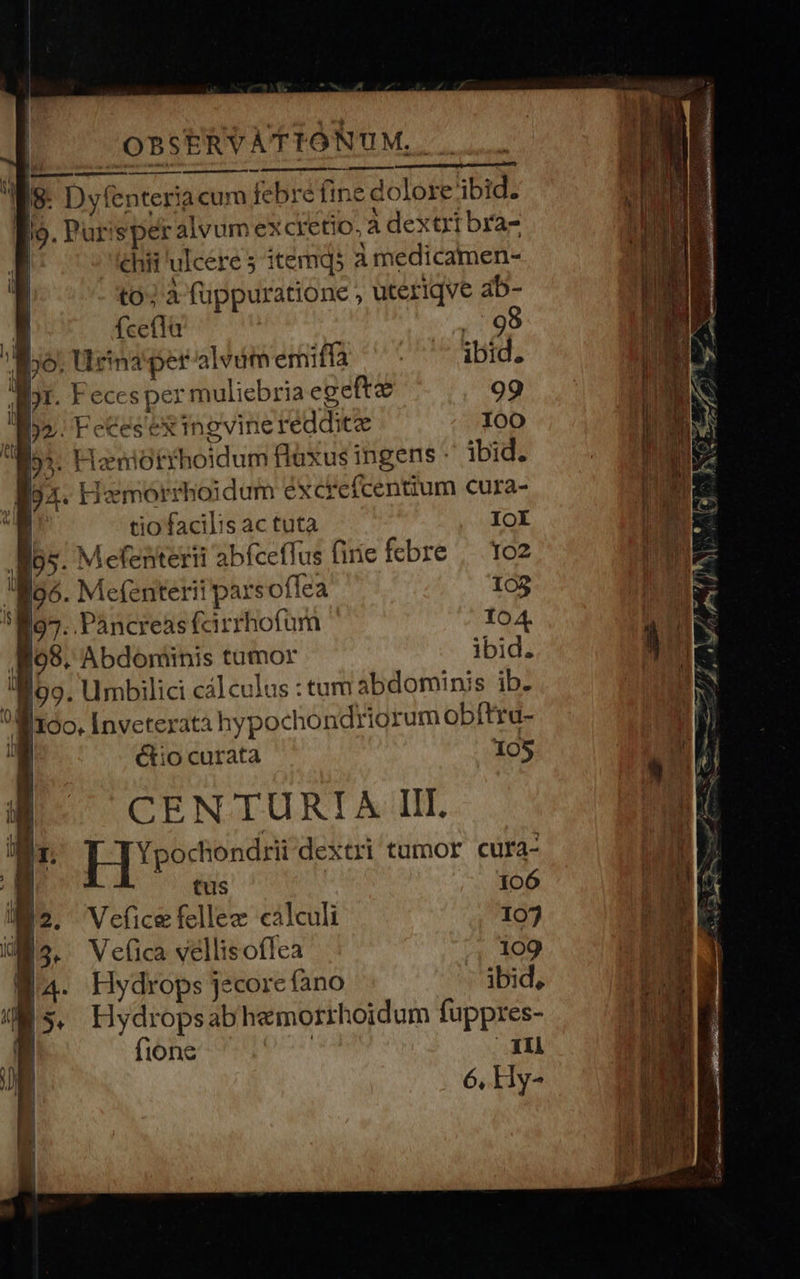 OBSERVATIONUM.
8. Dyſenteria cum febre ſine dolore ibid.
9. Puris per alvum excretio, à dextri bra-
chii ulcere; itemq; à medicamen-
to; à ſuppuratione, uteriqve ab-
ſceſſu 98
90. Urina per alvum emiſſa ibid.
91. Feces per muliebria egeſtæ 99
92. Feces ex ingvine redditæ 100
93. Hæmorrhoidum fluxus ingens ibid.
94. Hæmorrhoidum excreſcentium cura-
tio facilis ac tuta 101
95. Meſenterii abſceſſus ſine febre 102
96. Meſenterii pars oſſea 103
97. Pancreas ſcirrhoſum 104
98. Abdominis tumor ibid.
99. Umbilici calculus: tum abdominis ib.
100. Inveterata hypochondriorum obſtru-
ctio curata 105
CENTURIA III.
1. HYpochondrii dextri tumor cura-
tus 106
2. Veſicæ felleæ calculi 107
3. Veſica vellis oſſea 109
4. Hydrops jecore ſano ibid.
5. Hydrops ab hæmorrhoidum ſuppres-
ſione 111
6. Hy-